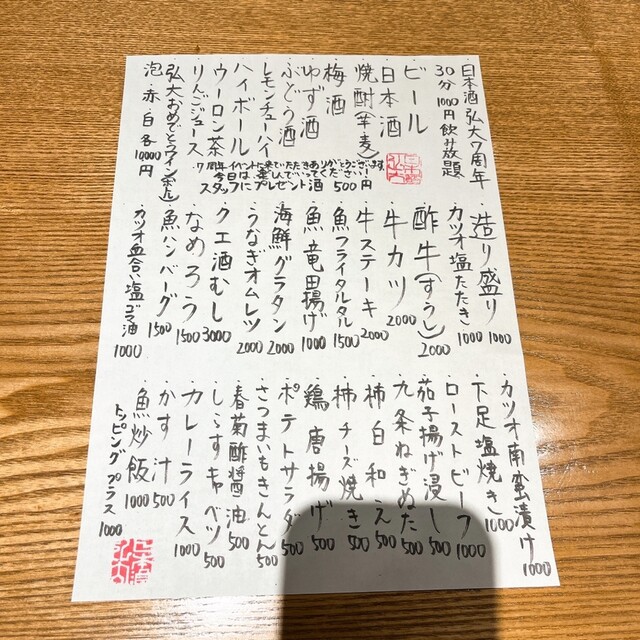 日本酒 弘大7周年
30分1000円飲み放題
・ビール
・日本酒
・焼酎(芋麦)
・梅酒
・ゆず酒
・ぶどう酒
・レモンチューハイ
・ハイボール
・ウーロン茶
・りんごジュース
弘大おめでとうワイン(ボトル)
泡・赤・白 各10000円
7周年イベントに来ていただきありがとうございます
今日は楽しんでいってください!
スタッフにプレゼント酒 500円
・造り盛り 1000
・カツオ塩たたき 1000
・酢牛(すうし) 2000
・牛カツ 2000
・牛ステーキ 2000
・魚フライタルタル 1500
・魚竜田揚げ 1000
・海鮮グラタン 2000
・うなぎオムレツ 2000
・クエ酒むし 3000
・なめろう 1500
・魚ハンバーグ 1500
・カツオ血合い塩ゴマ油 1000
・カツオ南蛮漬け 1000
・下足塩焼き 1000
・ローストビーフ 1000
・茄子揚げ浸し 500
・九条ねぎぬた 500
・柿白和え 500
・柿チーズ焼き 500
・鶏唐揚げ 500
・ポテトサラダ 500
・さつまいもきんとん 500
・春菊酢醤油 500
・しらすキャベツ 500
・カレーライス 1000
・かす汁 500
・魚炒飯 1000
トッピングプラス 1000